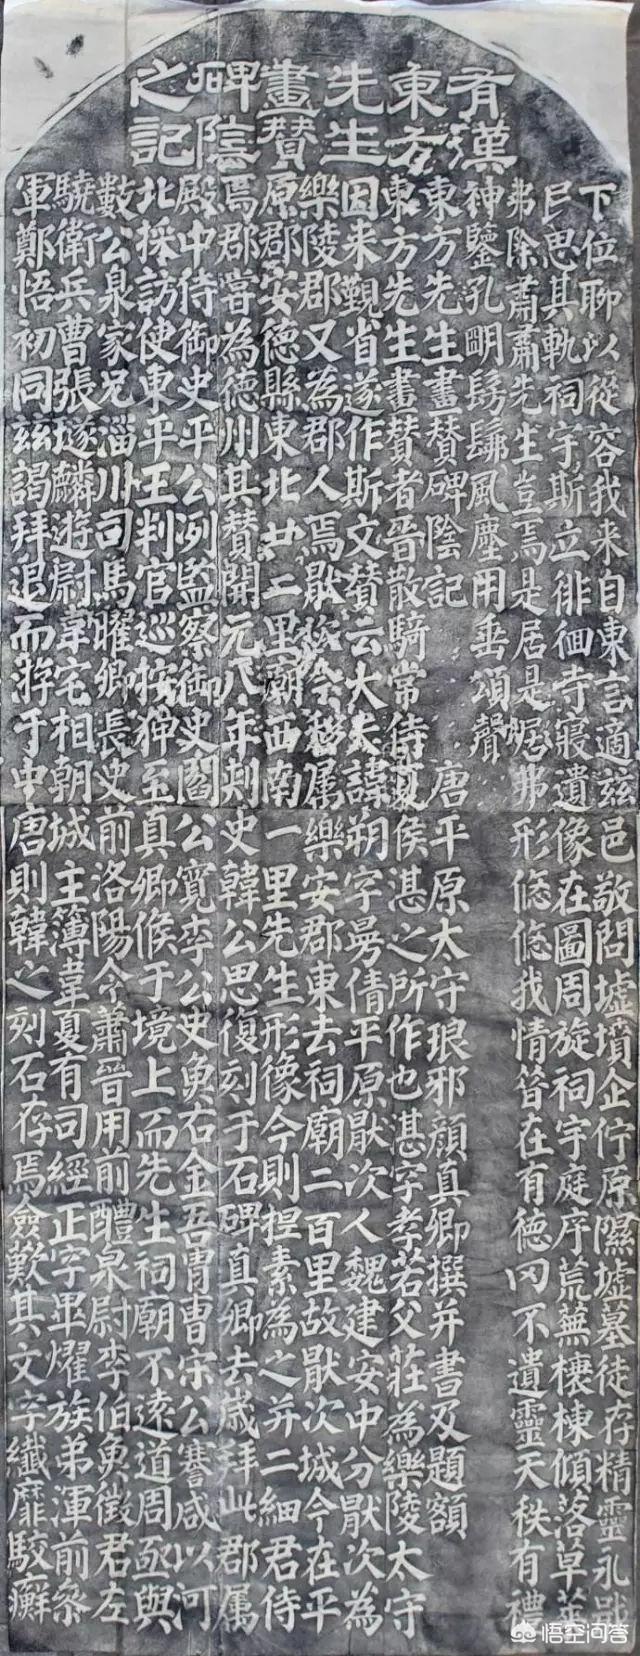 有漢
東方
先生
畫贊
碑陰
之記
下位聊以從容我来自東言適茲邑敬問墟墳企佇原隰墟墓徒存精靈永戢
民思其軌祠宇斯立徘徊寺寢遺像在圖周旋祠宇庭序荒蕪榱棟傾落草萊
弗除肅肅先生豈焉是居是居弗形悠悠我情昔在有德罔不遺靈天秩有禮
神鑒孔明髣髴風塵用垂頌聲
東方先生畫贊碑陰記 唐平原太守琅邪顏真卿撰并書及題額
東方先生畫贊者晉散騎常侍夏侯湛之所作也湛字孝若父莊為樂陵太守
因来覲省遂作斯文贊云大夫諱朔字曼倩平原厭次人魏建安中分厭次為
樂陵郡又為郡人焉厭次今移属樂安郡東去祠廟二百里故厭次城今在平
原郡安德縣東北廿二里廟西南一里先生形像今則捏素為之并二細君侍
焉郡嘗為德州其贊開元八年刺史韓公思復刻于石碑真卿去歲拜此郡属
殿中侍御史平公冽監察御史閻公寬李公史魚右金吾胄曹宋公謇咸以河
北採訪使東平王判官巡按狎至真卿候于境上而先生祠廟不遠道周亟與
數公泉家兄淄川司馬曜卿長史前洛陽令蕭晉用前醴泉尉李伯魚徵君左
驍衛兵曹張璲麟遊尉韋宅相朝城主簿韋夏有司經正字畢燿族弟渾前參
軍鄭悟初同茲謁拜退而游于中唐則韓之刻石存焉僉歎其文字纖靡駮癬
悟空问答